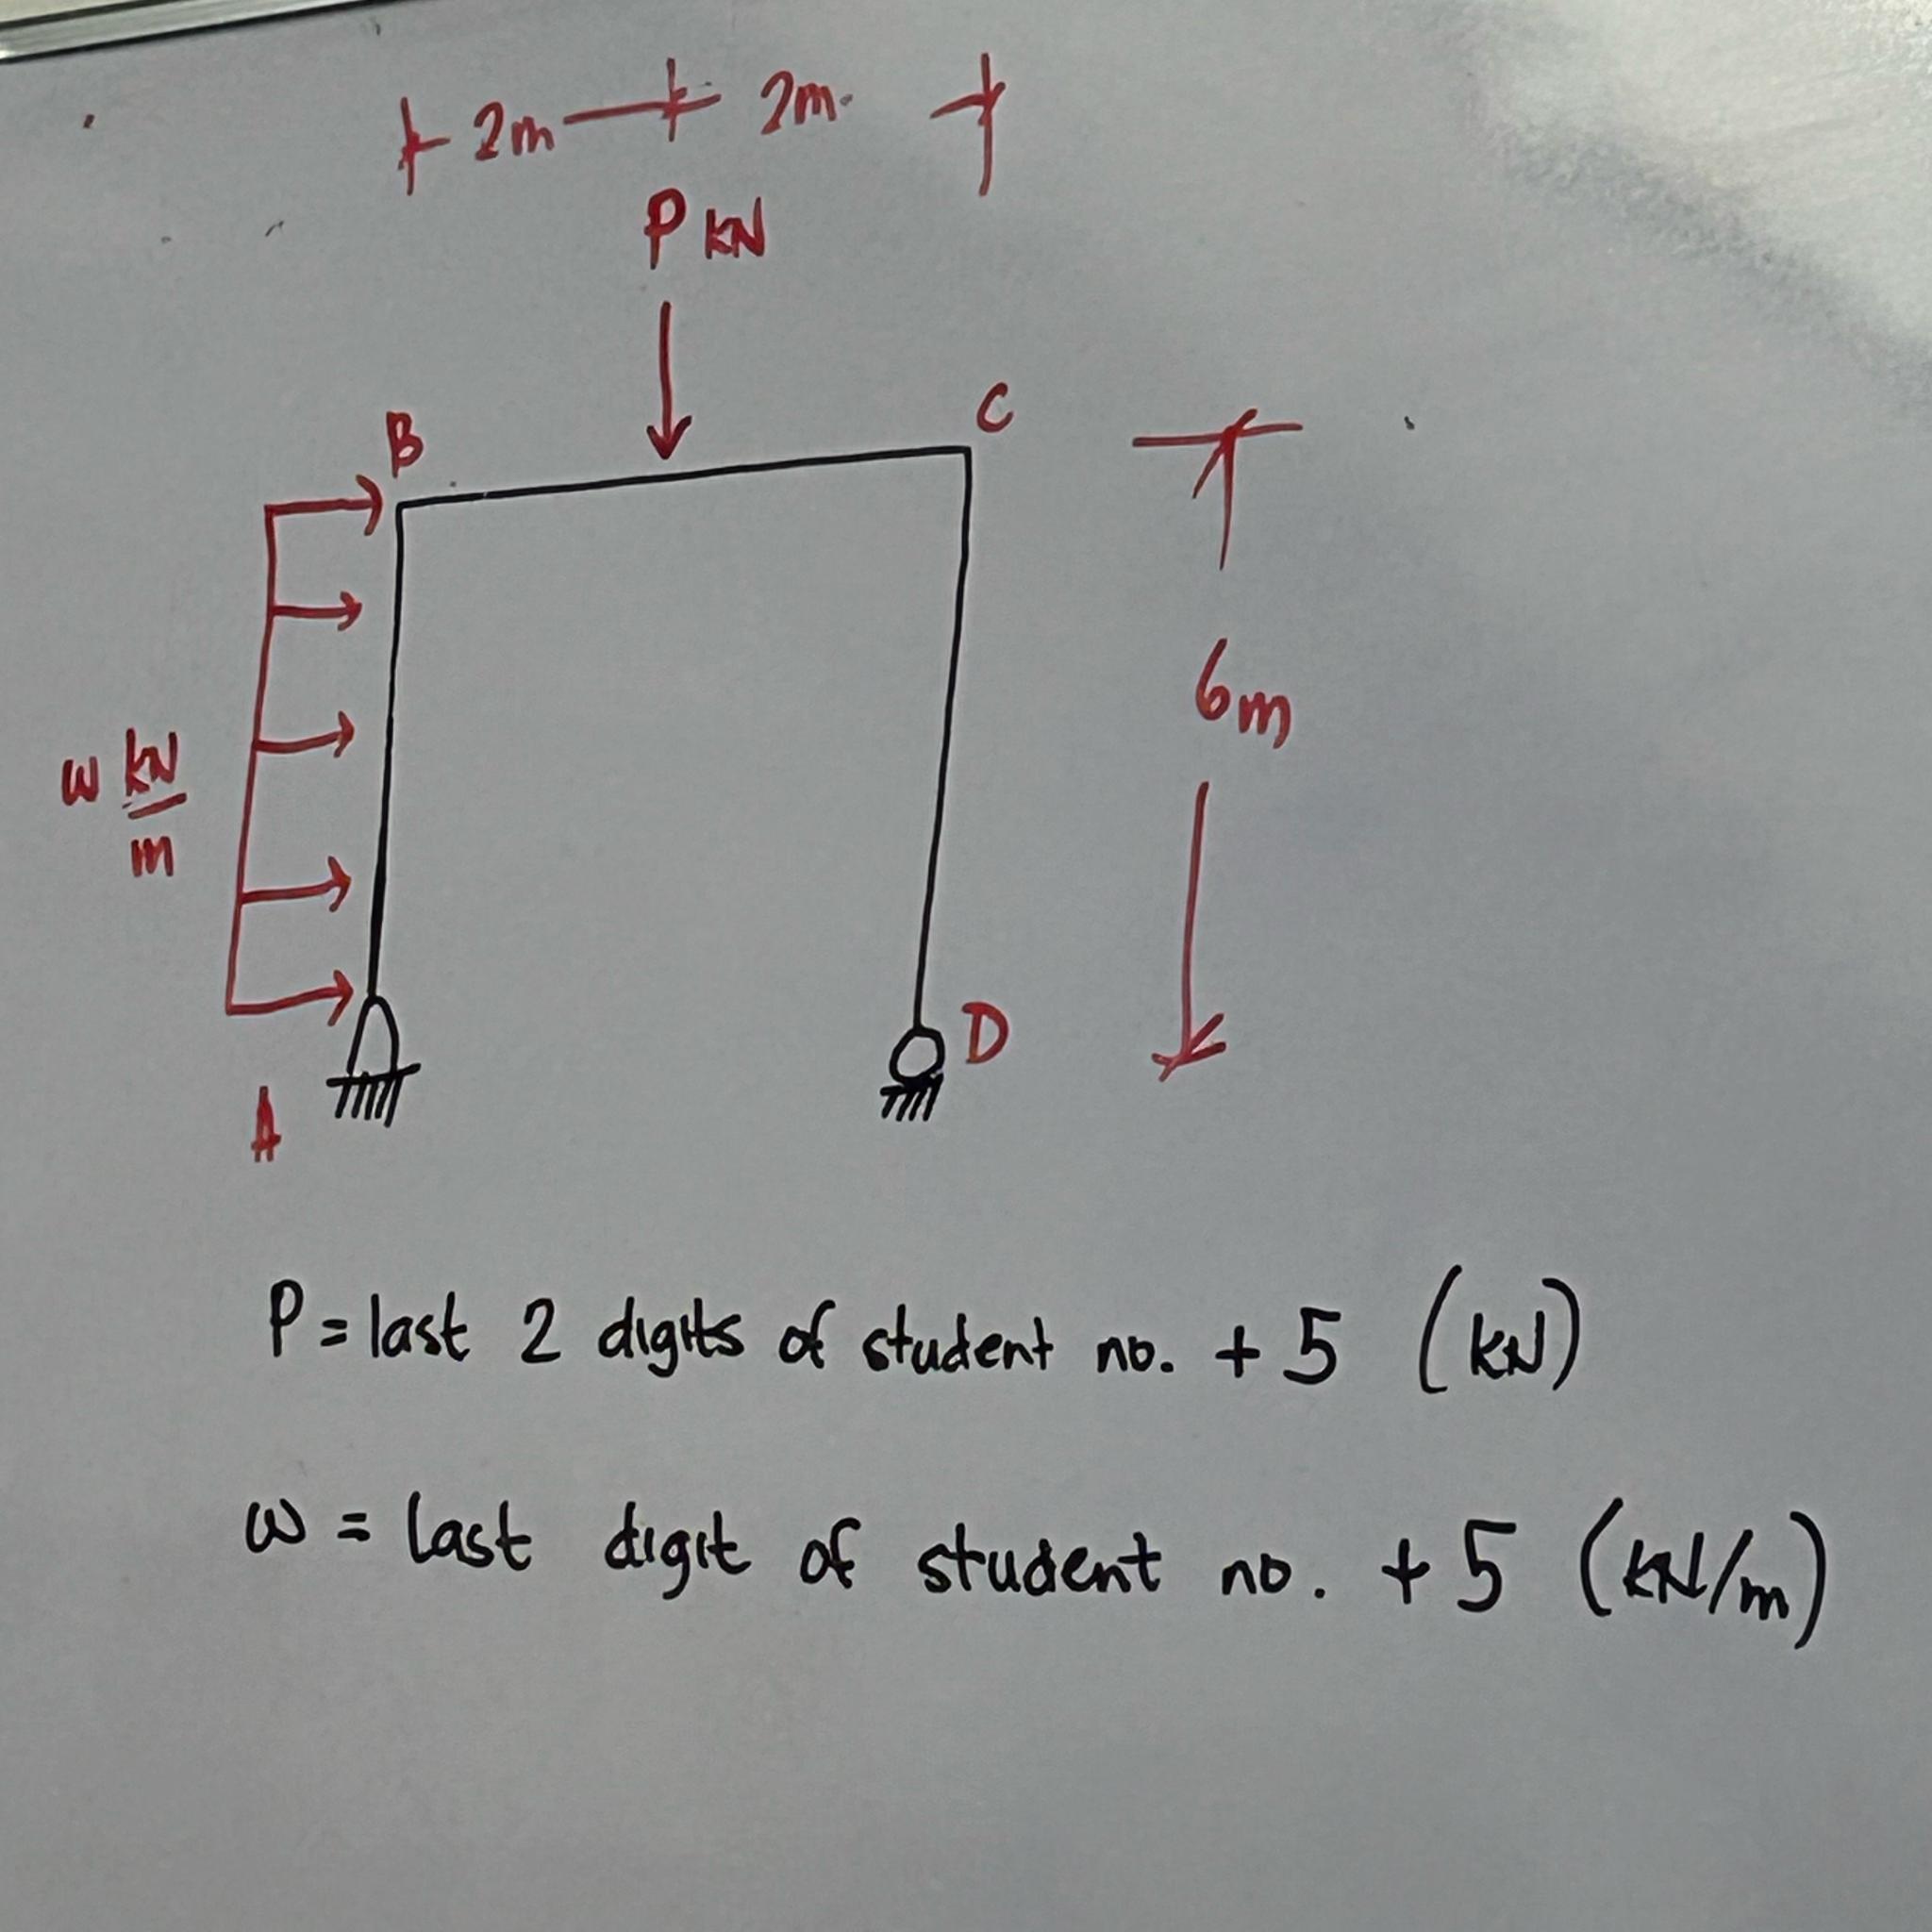 2m 2m.
P kN
B
C
w kN/m
6m
D
A
P = last 2 digits of student no. + 5 (kN)
w = last digit of student no. + 5 (kN/m)